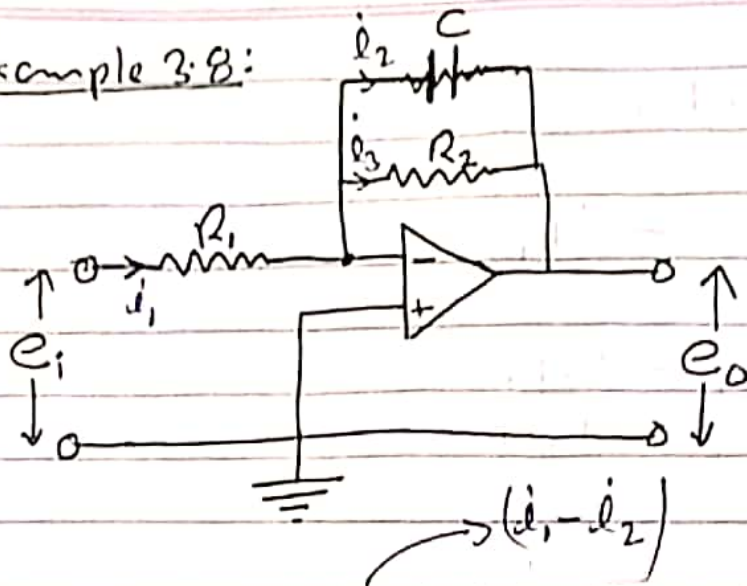 xample 3.8:
i₂ C
i₃ R₂
R₁
i₁
-
+
eᵢ
e₀
(i₁ - i₂)